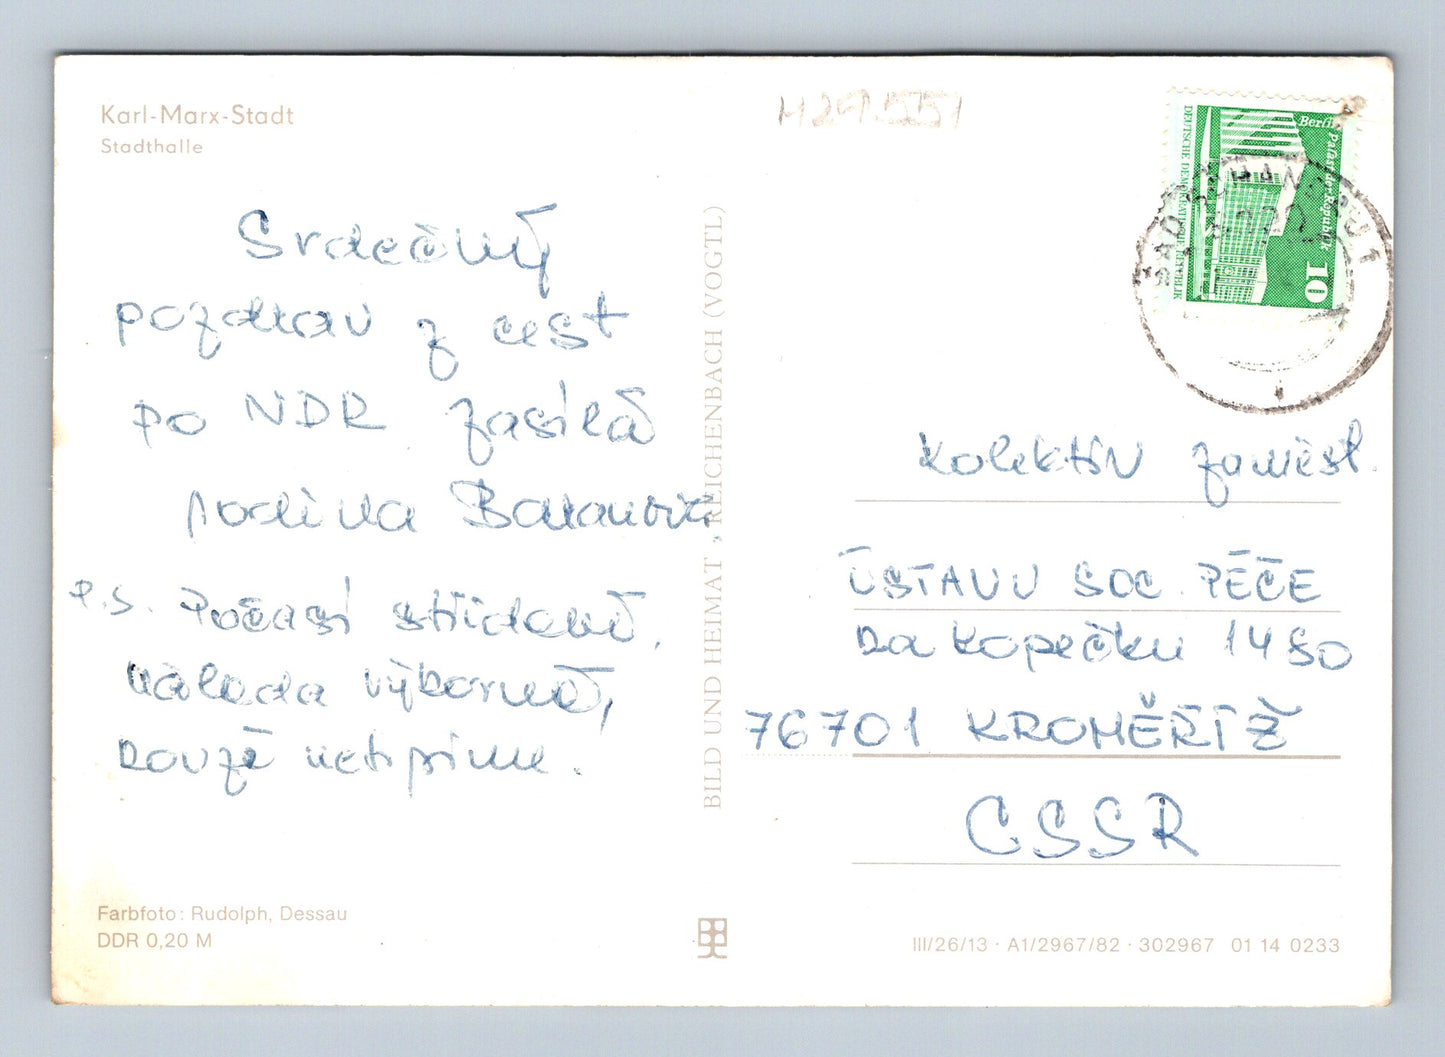 Karl-Marx-Stadt
Stadthalle
Srdečný
pozdrav z cest
po NDR zasílá
rodina Baranová
P.S. Počasí střídavé,
nálada výborná,
pouze netipime.
H297551
DEUTSCHE DEMOKRATISCHE REPUBLIK
Berlin
Palast der Republik
10
Kolektiv zaměst.
ÚSTAVU SOC. PÉČE
Na Kopečku 1480
76701 KROMĚŘÍŽ
CSSR
BILD UND HEIMAT, REICHENBACH (VOGTL)
Farbfoto: Rudolph, Dessau
DDR 0,20 M
III/26/13 · A1/2967/82 · 302967 01 14 0233